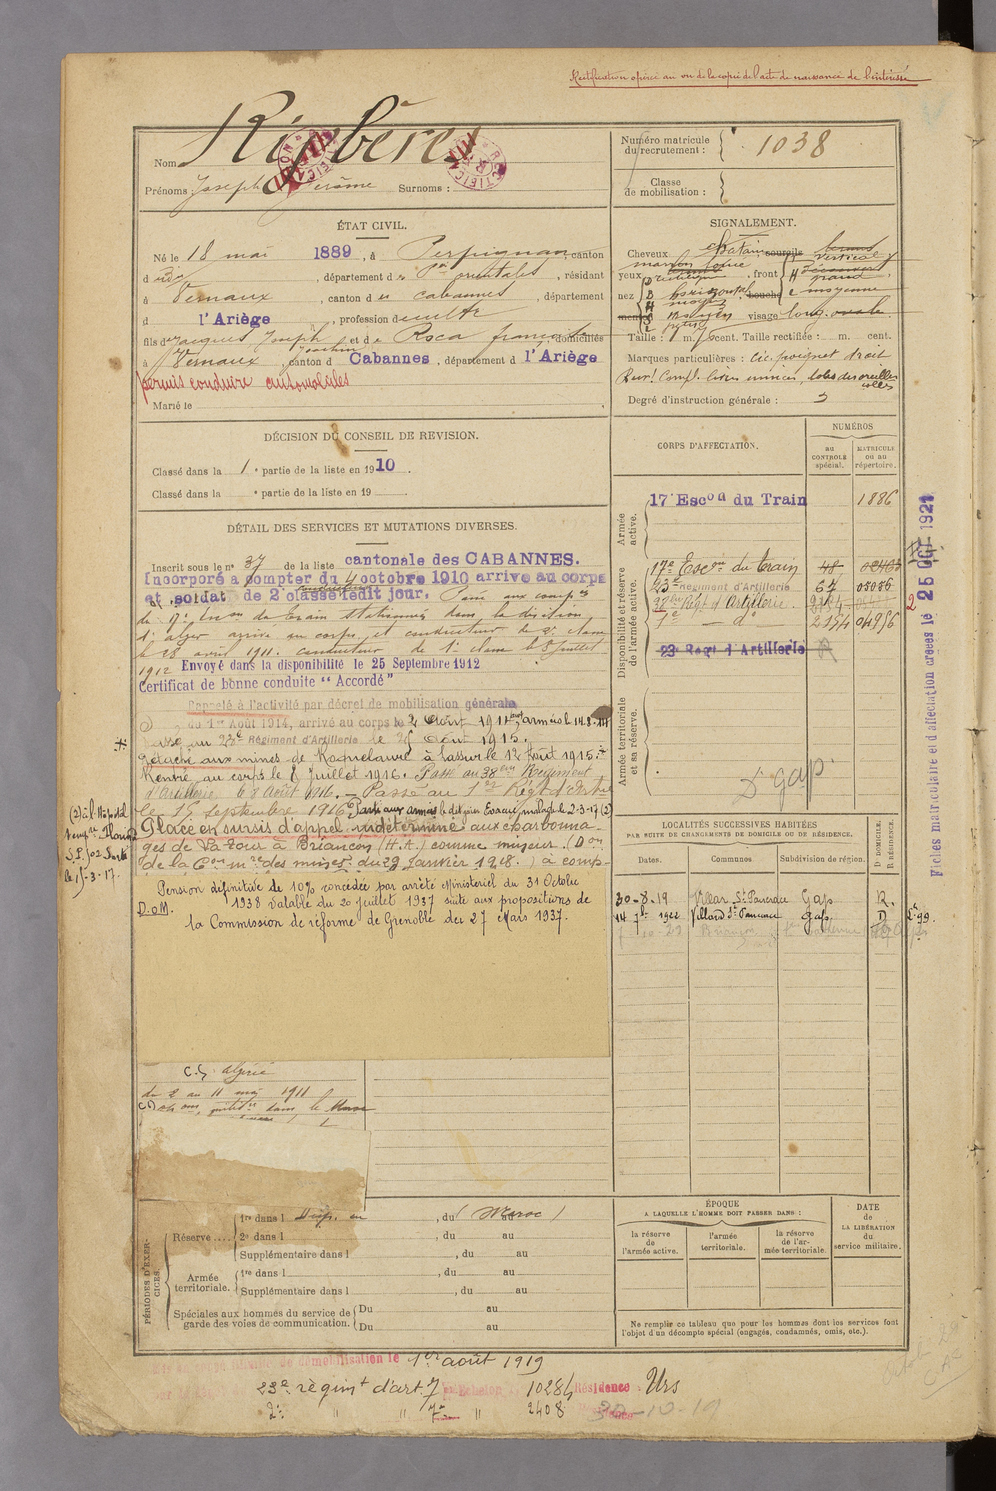 Rectification opérée au vu de la copie de l'acte de naissance de l'intéressé
Nom Ribères
Prénoms Joseph Jérôme Surnoms :
Numéro matricule du recrutement : 1038
Classe de mobilisation :
ÉTAT CIVIL.
Né le 18 mai 1889, à Perpignan canton
d dudit, département des Pées orientales, résidant
à Vernaux, canton des Cabannes, département
d l'Ariège, profession de cultr
fils de Jacques Joseph et de Roca françoise domiciliés
Joachim
à Vernaux, canton d Cabannes, département d l'Ariège
permis conduire automobiles
Marié le
SIGNALEMENT.
Cheveux chatain sourcils
yeux , front
nez bouche
menton visage long ovale
Taille : 1 m. cent. Taille rectifiée : m. cent.
Marques particulières : cic. poignet droit
lobes des oreilles collés
Degré d'instruction générale : 3
DÉCISION DU CONSEIL DE REVISION.
Classé dans la 1e partie de la liste en 1910.
Classé dans la e partie de la liste en 19
DÉTAIL DES SERVICES ET MUTATIONS DIVERSES.
Inscrit sous le n° 37 de la liste cantonale des CABANNES.
Incorporé a compter du 4 octobre 1910 arrive au corps
et soldat de 2e classe ledit jour. Passé aux compies
du 17e Escon du Train stationnées dans la division
d'alger arrivé au corps et conducteur de 2e classe
le 28 avril 1911. conducteur de 1e classe le 8 juillet
1912 Envoyé dans la disponibilité le 25 Septembre 1912
Certificat de bonne conduite "Accordé"
Rappelé à l'activité par décret de mobilisation générale
du 1er Août 1914, arrivé au corps le 2 Août 1914 aux armées le 14.8.14
Passé au 23e Régiment d'Artillerie le 25 Août 1915.
Détaché aux mines de Roquelaure à Lassur le 12 Août 1915.
Rentré au corps le 8 Juillet 1916. Passé au 38ème Régiment
d'Artillerie le 8 Août 1916. Passé au 1er Régt d'Artie
le 15 septembre 1916 Parti aux armées le dit jour Evacué malade le 2-3-17 (2)
Placé en sursis d'appel indéterminé aux charbonna-
ges de la Tour à Briançon (H.A.) comme mineur. (Don
de la Con mre des mines du 29 janvier 1918.) à comp-
(2) à l'Hôpital
le 15-3-17.
D.o.M.
Pension définitive de 10% concédée par arrêté Ministeriel du 31 Octobre
1938 Valable du 20 juillet 1937 suite aux propositions de
la Commission de réforme de Grenoble du 27 Mars 1937.
C.S. algérie
du 2 au 11 mai 1911
dans le Maroc
CORPS D'AFFECTATION.
NUMÉROS
au CONTROLE spécial.
MATRICULE ou au répertoire.
Armée active.
17e Escon du Train 1886
Disponibilité et réserve de l'armée active.
17e Escon du train 48
23e Régiment d'Artillerie 67 05056
38ème Régt d'Artillerie. 2124
1e — do 2154 04956
23e Regt d'Artillerie
Armée territoriale et sa réserve.
Dt Gap
Fiches matriculaire et d'affectation créées le 25 OCT 1921
LOCALITÉS SUCCESSIVES HABITÉES
PAR SUITE DE CHANGEMENTS DE DOMICILE OU DE RÉSIDENCE.
Dates. Communes. Subdivision de région. D DOMICILE. R RÉSIDENCE.
30-8-19 Villar St Pancrace Gap R.
14 7bre 1922 Villard St Pancrace Gap. D
Briançon
PÉRIODES D'EXERCICES.
Réserve....
1re dans l Disp. au , du ( Maroc )
2e dans l , du au
Supplémentaire dans l , du au
Armée territoriale.
1re dans l , du au
Supplémentaire dans l , du au
Spéciales aux hommes du service de garde des voies de communication.
Du au
Du au
ÉPOQUE
A LAQUELLE L'HOMME DOIT PASSER DANS :
la réserve de l'armée active.
l'armée territoriale.
la réserve de l'armée territoriale.
DATE de LA LIBÉRATION du service militaire.
Ne remplir ce tableau que pour les hommes dont les services font
l'objet d'un décompte spécial (engagés, condamnés, omis, etc.).
de démobilisation le 1er août 1919
23e régimt d'art. 7e Echelon 10284 Résidence Urs
2e " " 7e " 2408 30-10-19